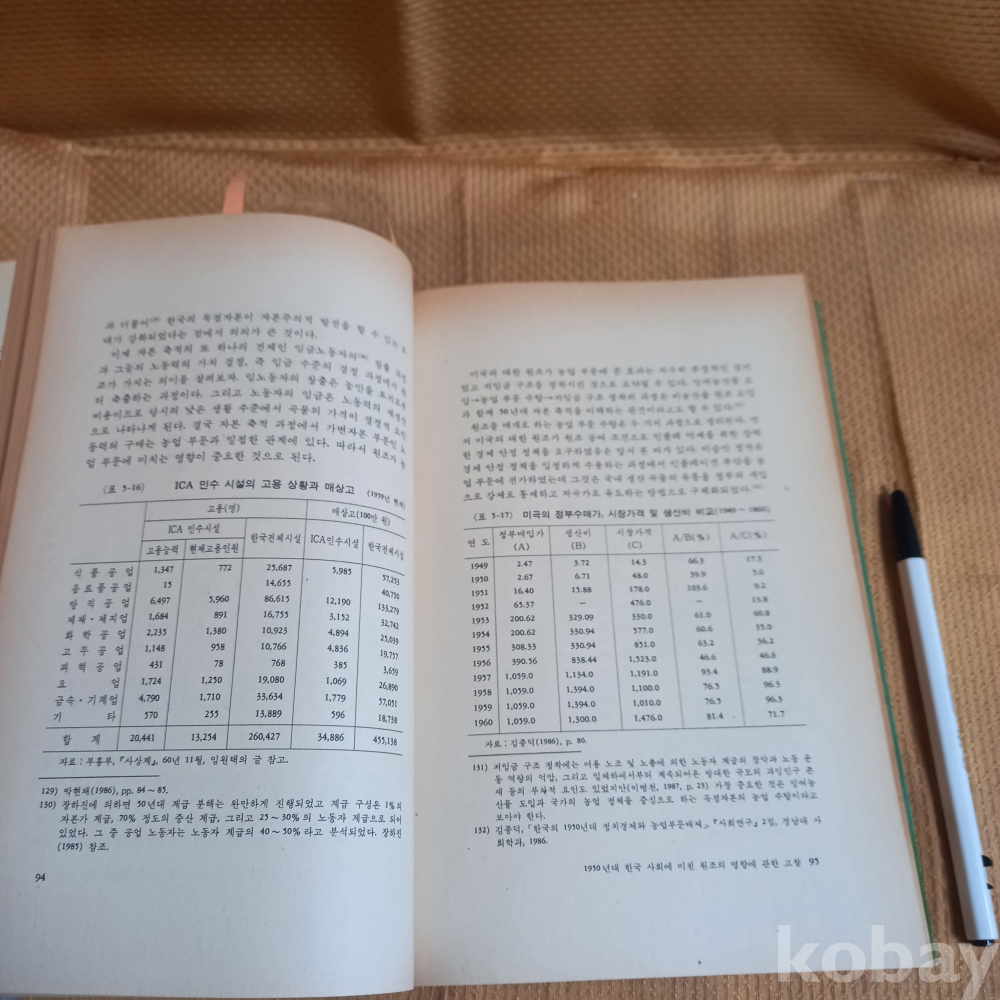 과 더불어 한국의 독점자본이 자본주의적 발전을 할 수 있는 토
대가 강화되었다는 점에서 의의가 큰 것이다.
이제 자본 축적의 또 하나의 전제인 임금노동자의 창출 과정
과 그들의 노동력의 가치 결정, 즉 임금 수준의 결정 과정에서 원
조가 가지는 의미를 살펴보자. 임노동자의 창출은 농민을 토지로부
터 축출하는 과정이다. 그리고 노동자의 임금은 노동력의 재생산
비용이므로 당시의 낮은 생활 수준에서 곡물의 가격이 결정적 요인
으로 나타나게 된다. 결국 자본 축적 과정에서 가변자본 부문인 노
동력의 구매는 농업 부문과 밀접한 관계에 있다. 따라서 원조가 농
업 부문에 미치는 영향이 중요한 것으로 된다.
〈표 5-16〉 ICA 민수 시설의 고용 상황과 매상고 (1959년 현재)
고용(명) 매상고(100만 원)
ICA 민수시설 한국전체시설 ICA민수시설 한국전체시설
고용능력 현재고용인원
식품공업 1,347 772 25,687 5,985 57,253
음료품공업 15 14,655 40,750
방직공업 6,497 5,960 86,615 12,190 133,279
제재·제지업 1,684 891 16,755 3,152 32,742
화학공업 2,235 1,380 10,923 4,894 25,039
고무공업 1,148 958 10,766 4,836 19,757
피혁공업 431 78 768 385 3,659
요업 1,724 1,250 19,080 1,069 26,890
금속·기계업 4,790 1,710 33,634 1,779 57,051
기타 570 255 13,889 596 18,738
합계 20,441 13,254 260,427 34,886 455,138
자료: 부흥부, 『사상계』, 60년 11월, 임원택의 글 참고.
129) 박현채(1986), pp. 84~85.
130) 장하진에 의하면 50년대 계급 분해는 완만하게 진행되었고 계급 구성은 1%의
자본가 계급, 70% 정도의 중산 계급, 그리고 25~30%의 노동자 계급으로 되어
있었다. 그 중 공업 노동자는 노동자 계급의 40~50%라고 분석되었다. 장하진
(1985) 참조.
94
미국의 대한 원조가 농업 부문에 준 효과는 지극히 부정적인 것이
었고 저임금 구조를 정착시킨 것으로 요약될 수 있다. 잉여농산물 도
입→농업 부문 수탈→저임금 구조 정착의 과정은 비농산물 원조 도입
과 함께 50년대 자본 축적을 이해하는 관건이라고도 할 수 있다.
원조를 매개로 하는 농업 부문 수탈은 두 가지 과정으로 정리된다. 먼
저 미국의 대한 원조가 원조 공여 조건으로 인플레 억제를 위한 강력
한 경제 안정 정책을 요구하였음은 앞서 본 바가 있다. 이승만 정권은
경제 안정 정책을 일정하게 수용하는 과정에서 인플레이션 부담을 농
업 부문에 전가하였는데 그것은 국내 생산 곡물의 유통을 정부의 개입
으로 강제로 통제하고 저곡가로 유도하는 방법으로 구체화되었다.
〈표 5-17〉 미곡의 정부수매가, 시장가격 및 생산비 비교(1949~1960)
연도 정부매입가(A) 생산비(B) 시장가격(C) A/B(%) A/C(%)
1949 2.47 3.72 14.3 66.3 17.3
1950 2.67 6.71 48.0 39.9 5.6
1951 16.40 15.88 178.0 103.6 9.2
1952 65.37 — 476.0 — 13.8
1953 200.62 329.09 330.0 61.0 60.8
1954 200.62 330.94 577.0 60.6 35.0
1955 308.33 330.94 851.0 63.2 36.2
1956 390.56 838.44 1,523.0 46.6 46.6
1957 1,059.0 1,134.0 1,191.0 93.4 88.9
1958 1,059.0 1,394.0 1,100.0 76.5 96.3
1959 1,059.0 1,394.0 1,010.0 76.5 96.3
1960 1,059.0 1,300.0 1,476.0 81.4 71.7
자료: 김종덕(1986), p. 80.
131) 저임금 구조 정착에는 어용 노조 및 노총에 의한 노동자 계급의 장악과 노동 운
동 역량의 억압, 그리고 일제하에서부터 계속되어온 방대한 규모의 과잉인구 존
재 등의 부차적 요인도 있었지만(이병천, 1987, p. 23) 가장 중요한 것은 잉여농
산물 도입과 국가의 농업 정책을 중심으로 하는 독점자본의 농업 수탈이라고
보아야 한다.
132) 김종덕, 「한국의 1950년대 정치경제와 농업부문배제」, 『사회연구』 2집, 경남대 사
회학과, 1986.
1950년대 한국 사회에 미친 원조의 영향에 관한 고찰 95
kobay